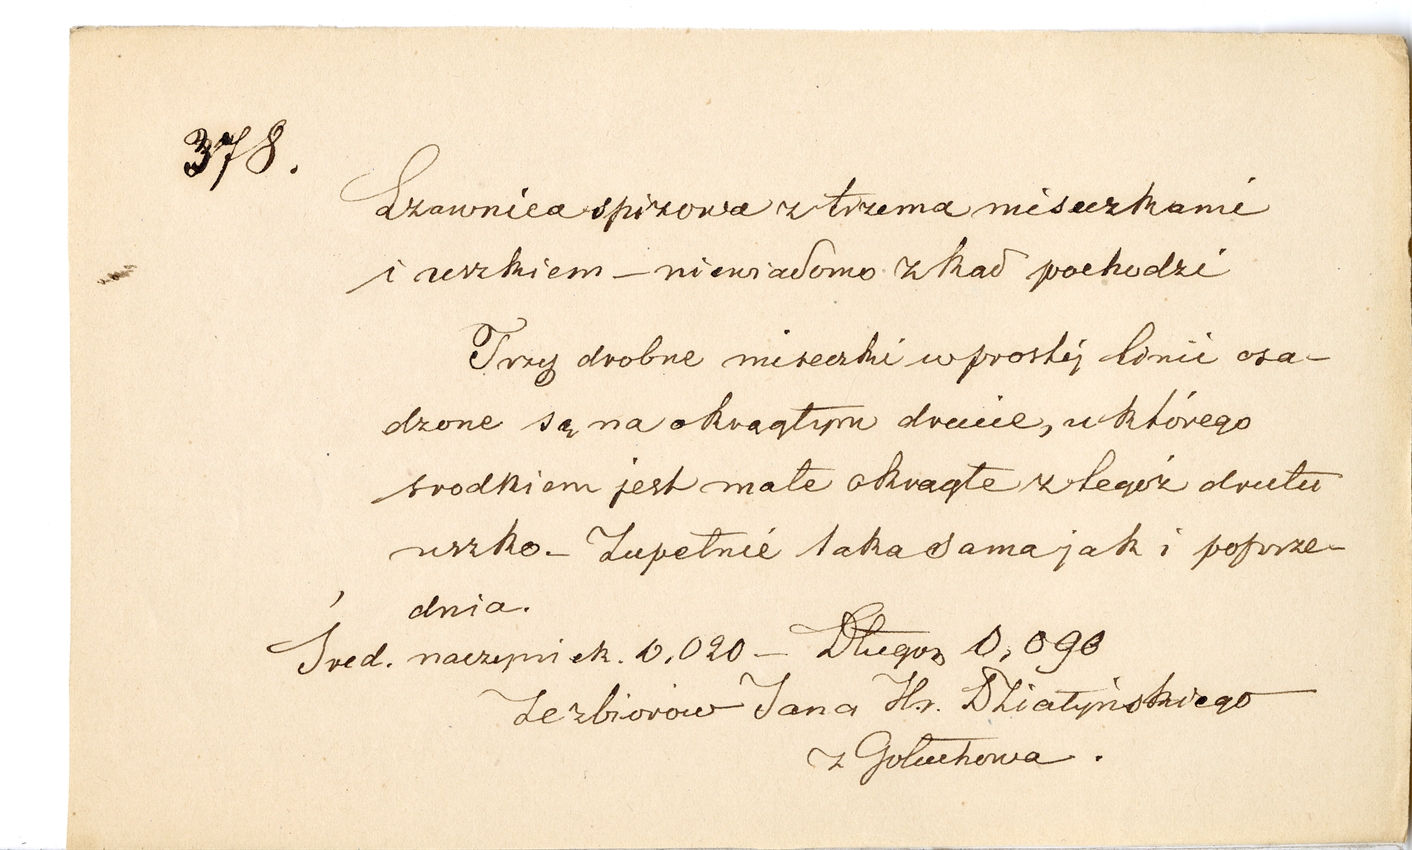 378.
Łzawnica spiżowa z trzema miseczkami
i uszkiem – niewiadomo zkad pochodzi
Trzy drobne miseczki w prostéj linii osa-
dzone są na okrągłym drucie, u którego
srodkiem jest małe okrągłe z tegoż drutu
uszko. – Zupełnie taka sama jak i poprze-
dnia.
Śred. naczyniek. 0,020 – Długoś 0,090
Ze zbiorów Jana Hr. Działyńskiego
z Gołuchowa.